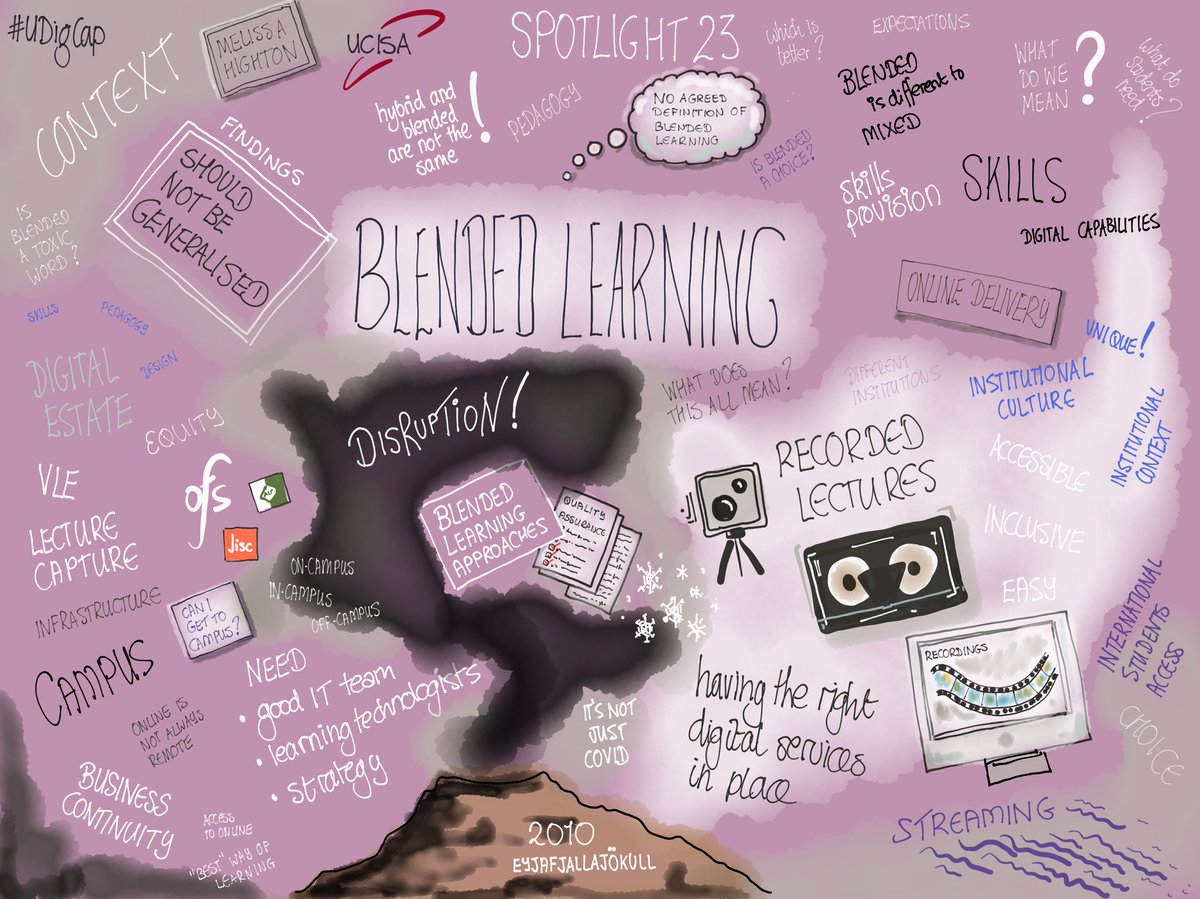 #UDigCap
CONTEXT
MELISSA
HIGHTON
UCISA
SPOTLIGHT 23
which is
better?
EXPECTATIONS
BLENDED
is different to
MIXED
WHAT
DO WE
MEAN
?
What do
students
need?
FINDINGS
SHOULD
NOT BE
GENERALISED
hybrid and
blended
are not the
same
!
PEDAGOGY
NO AGREED
DEFINITION OF
BLENDED
LEARNING
IS BLENDED
A CHOICE?
skills
provision
SKILLS
DIGITAL CAPABILITIES
IS
BLENDED
A TOXIC
WORD?
BLENDED LEARNING
ONLINE DELIVERY
SKILLS
PEDAGOGY
DESIGN
DIGITAL
ESTATE
EQUITY
DISRUPTION!
WHAT DOES
THIS ALL MEAN?
DIFFERENT
INSTITUTIONS
INSTITUTIONAL
CULTURE
UNIQUE!
INSTITUTIONAL
CONTEXT
VLE
LECTURE
CAPTURE
ofs
ALT
Jisc
BLENDED
LEARNING
APPROACHES
QUALITY
ASSURANCE
RECORDED
LECTURES
ACCESSIBLE
INCLUSIVE
EASY
INFRASTRUCTURE
CAN I
GET TO
CAMPUS?
ON-CAMPUS
IN-CAMPUS
OFF-CAMPUS
RECORDINGS
INTERNATIONAL
STUDENTS
ACCESS
CAMPUS
NEED
• good IT team
• learning technologists
• strategy
IT'S NOT
JUST
COVID
having the right
digital services
in place
CHOICE
ONLINE IS
NOT ALWAYS
REMOTE
BUSINESS
CONTINUITY
ACCESS
TO ONLINE
"BEST" WAY OF
LEARNING
2010
EYJAFJALLAJÖKULL
STREAMING